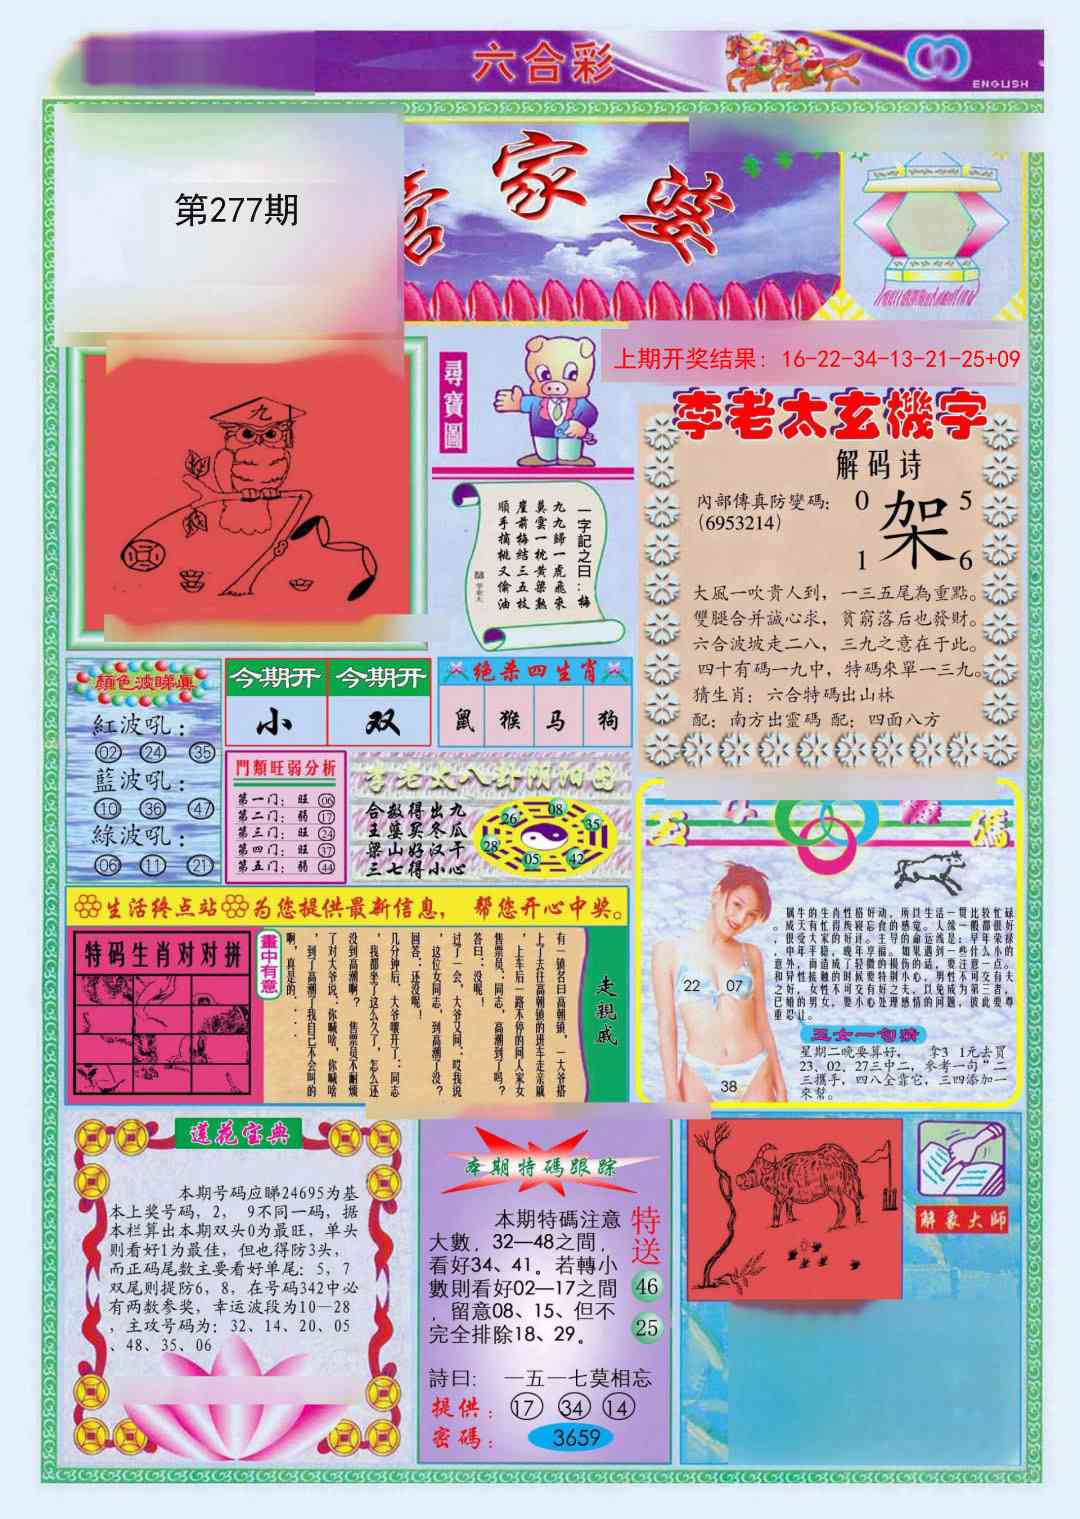 六合彩
ENGLISH
管家婆
第277期
上期开奖结果：16-22-34-13-21-25+09
九
尋寶圖
一字記之曰：梅
九九歸一虎飛來
莫雲一枕黄梁熟
崖前梅结三五枝
順手摘桃又偷油
李老太玄機字
解码诗
内部傳真防變碼：
（6953214）
0 5
架
1 6
大風一吹貴人到，一三五尾為重點。
雙腿合并誠心求，贫窮落后也發財。
六合波坡走二八，三九之意在于此。
四十有碼一九中，特碼來單一三九。
猜生肖：六合特碼出山林
配：南方出靈碼 配：四面八方
顏色波睇真
紅波吼：
02 24 35
藍波吼：
10 36 47
綠波吼：
06 11 21
今期开 今期开
小 双
绝杀四生肖
鼠 猴 马 狗
門類旺弱分析
第一门： 旺 06
第二门： 弱 17
第三门： 旺 24
第四门： 旺 37
第五门： 弱 44
李老太八卦阴阳图
合数得出九
王婆买冬瓜
梁山好汉干
三七得小心
26 08 35 28 05 42
生活终点站 为您提供最新信息， 帮您开心中奖。
特码生肖对对拼
畫中有意
走親戚
有一镇名曰高朝镇，一大爷搭
上了去往高朝镇的班车走亲戚
，上车后一路不停的问人家女
售票员：同志，高潮到了吗？
答曰：没呢！
过了一会，大爷又问：哎我说
，这位女同志，到高潮了没？
回答：还没呢．！
几分钟后，大爷嚷开了：同志
，我都坐了这么久了，怎么还
没到高潮啊？ 售票员不耐烦
了对大爷说：你喊啥，你喊啥
，到了高潮了我自己不会叫的
啊，真是的．．．．
五 碼
属牛的生肖性格好动，所以生活一贯比较忙碌
。成天有忙得所寝忘食的感觉。人缘一般都很好
，很受大家的好评。主导的命运线是：早年荣禄
，中年平稳，晚年享福。如果遇到一些什么小的
意外，而造成了轻微的损伤的话，要注意一点。
和异性接触的时候要特别小心，男性不可交有夫
之好，女性不可交有好之夫，以免成为第三者，
已婚的男女，要小心处理感情的问题，彼此要尊
重忍让。
22 07
38
三女一句猜
星期二晚要算好， 拿3 1元去買
23、02、27三中二，參考一句“二
三攜手，四八全靠它，三四添加一
來幫。
蓮花宝典
本期号码应睇24695为基
本上奖号码，2， 9不同一码，据
本栏算出本期双头0为最旺，单头
则看好1为最佳，但也得防3头，
而正码尾数主要看好单尾：5，7
双尾则提防6，8，在号码342中必
有两数参奖，幸运波段为10—28
，主攻号码为：32、14、20、05
、48、35、06
本期特碼跟踪
本期特碼注意
大數，32—48之間，
看好34、41。若轉小
數則看好02—17之間
，留意08、15、但不
完全排除18、29。
特送
46
25
詩曰： 一五一七莫相忘
提供： 17 34 14
密碼： 3659
解象大師